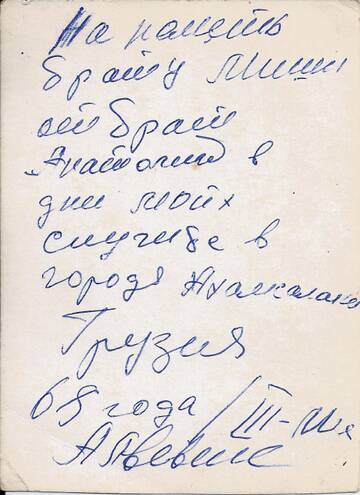 На память
брату Мише
от брат
Анатолия в
дни моих
службе в
городя Ахалкалаки
Грузия
69 года / III-